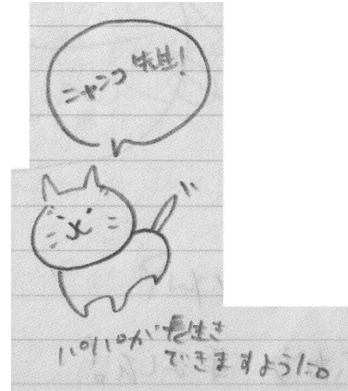 ニャンコ先生!
パパが長生き
できますように。